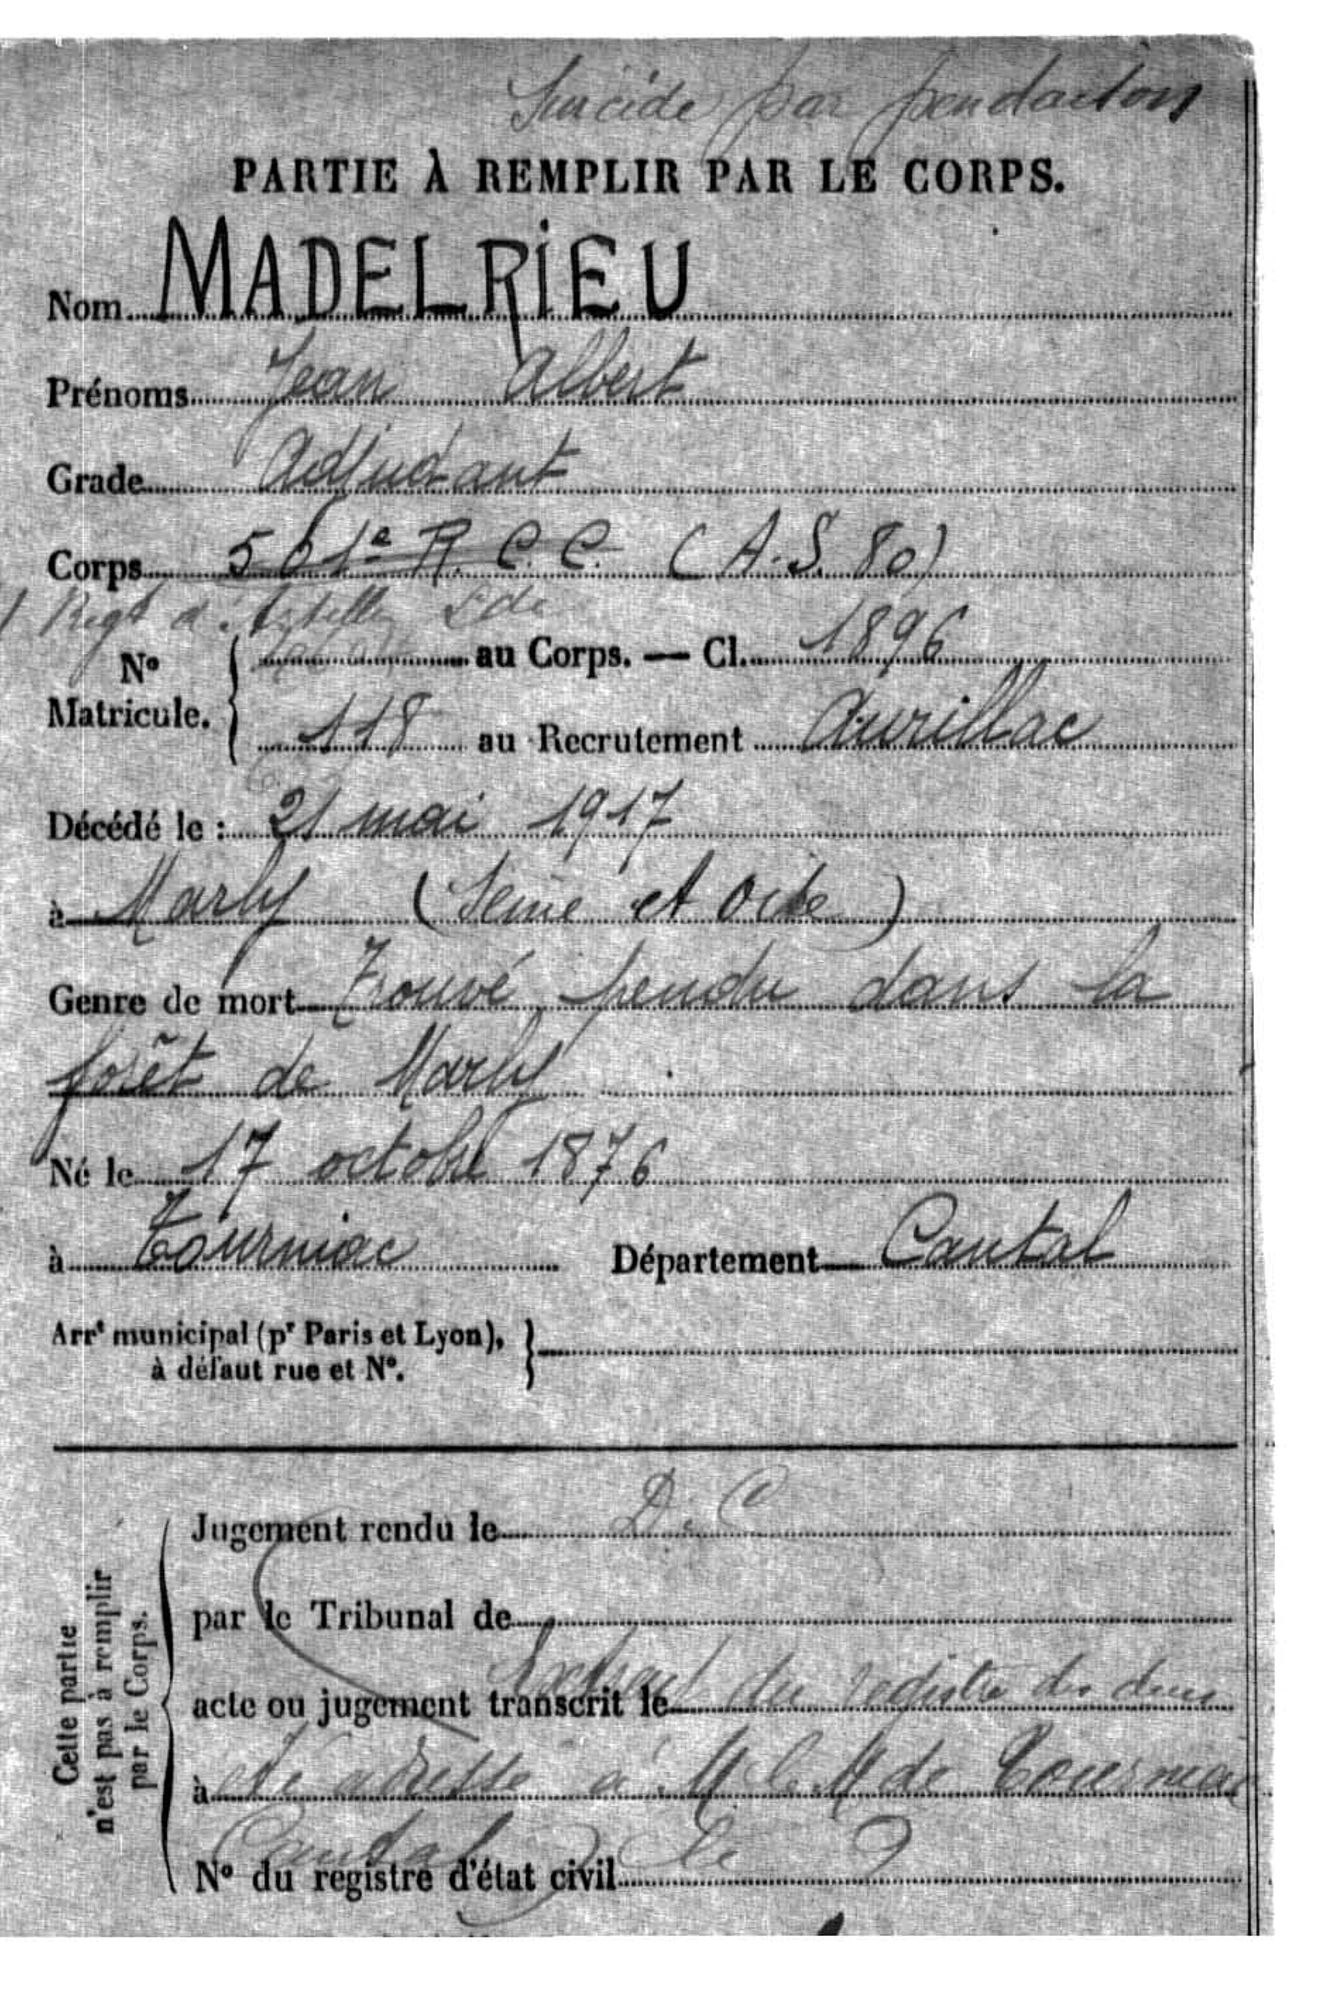 Suicide par pendaison
PARTIE À REMPLIR PAR LE CORPS.
Nom MADELRIEU
Prénoms Jean Albert
Grade Adjudant
Corps 501e R. C. C. (A.S. 80)
Regt d'
No Matricule. au Corps. — Cl. 1896
118 au Recrutement Aurillac
Décédé le : 21 mai 1917
à Marly (Seine et Oise)
Genre de mort Trouvé pendu dans la
forêt de Marly
Né le 17 octobre 1876
à Tourniac Département Cantal
Arrt municipal (pr Paris et Lyon),
à défaut rue et No.
Cette partie
n'est pas à remplir
par le Corps.
Jugement rendu le D. C
par le Tribunal de
acte ou jugement transcrit le Extrait du registre des
à été adressé à M le M de Tourniac
Cantal) le ?
No du registre d'état civil